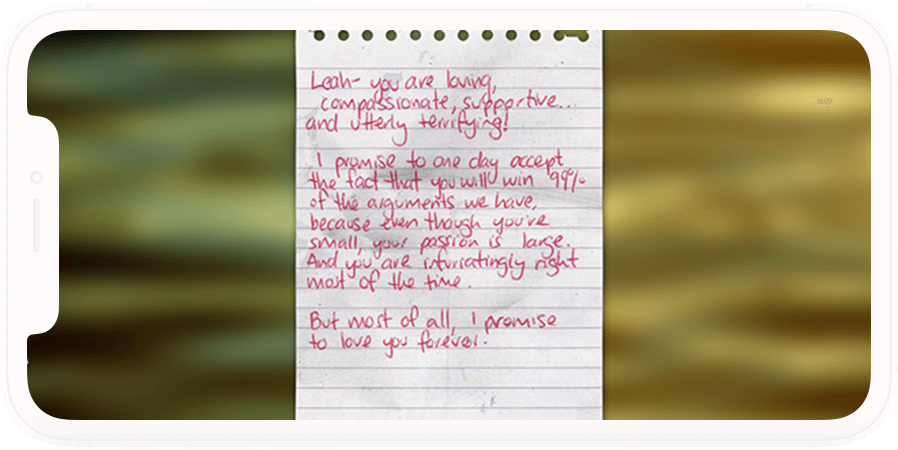 Leah- you are loving,
compassionate, supportive...
and utterly terrifying!
I promise to one day accept
the fact that you will win 99%
of the arguments we have,
because even though you're
small, your passion is large.
And you are infuriatingly right
most of the time.
But most of all, I promise
to love you forever.